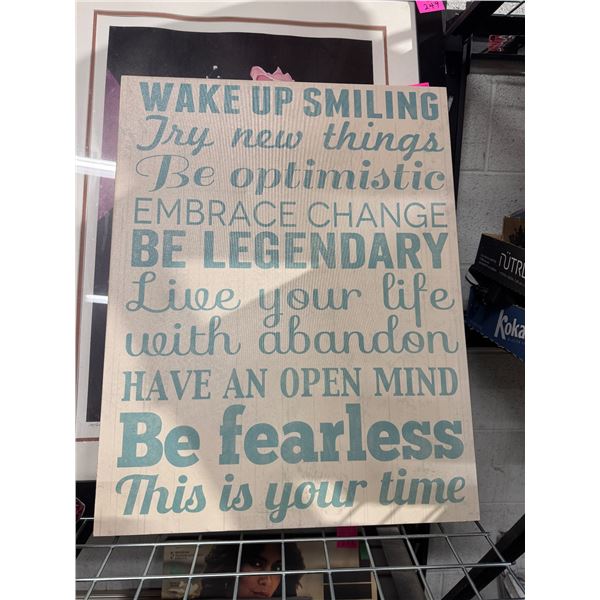 249
WAKE UP SMILING
Try new things
Be optimistic
EMBRACE CHANGE
BE LEGENDARY
Live your life
with abandon
HAVE AN OPEN MIND
Be fearless
This is your time
NUTR
Koka